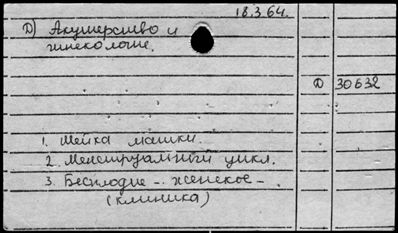 18.3.64.
D) Акушерство и
гинекология.
D 30632
1. Шейка матки.
2. Менструальный цикл.
3. Бесплодие - женское -
(клиника)